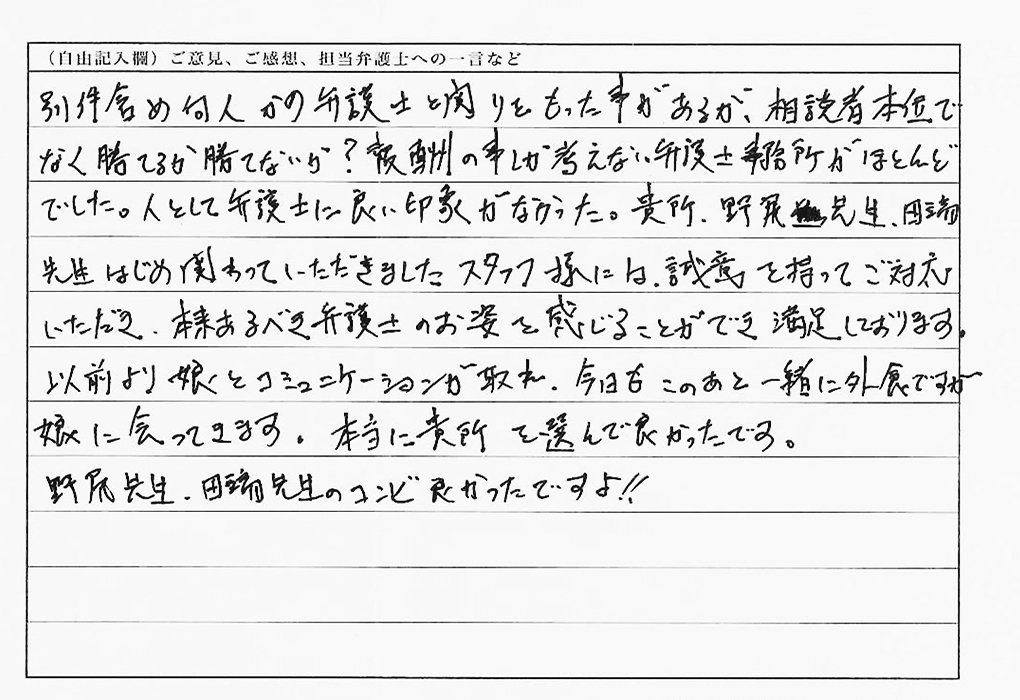 （自由記入欄）ご意見、ご感想、担当弁護士への一言など
別件含め何人かの弁護士と関りをもった事があるが、相談者本位で
なく勝てるか勝てないか？報酬の事しか考えない弁護士事務所がほとんど
でした。人として弁護士に良い印象がなかった。貴所、野尻先生、田端
先生はじめ関わっていただきましたスタッフ様には、誠意を持ってご対応
いただき、本来あるべき弁護士のお姿を感じることができ満足しております。
以前より娘とコミュニケーションが取れ、今日もこのあと一緒に外食ですが
娘に会ってきます。本当に貴所を選んで良かったです。
野尻先生、田端先生のコンビ良かったですよ!!